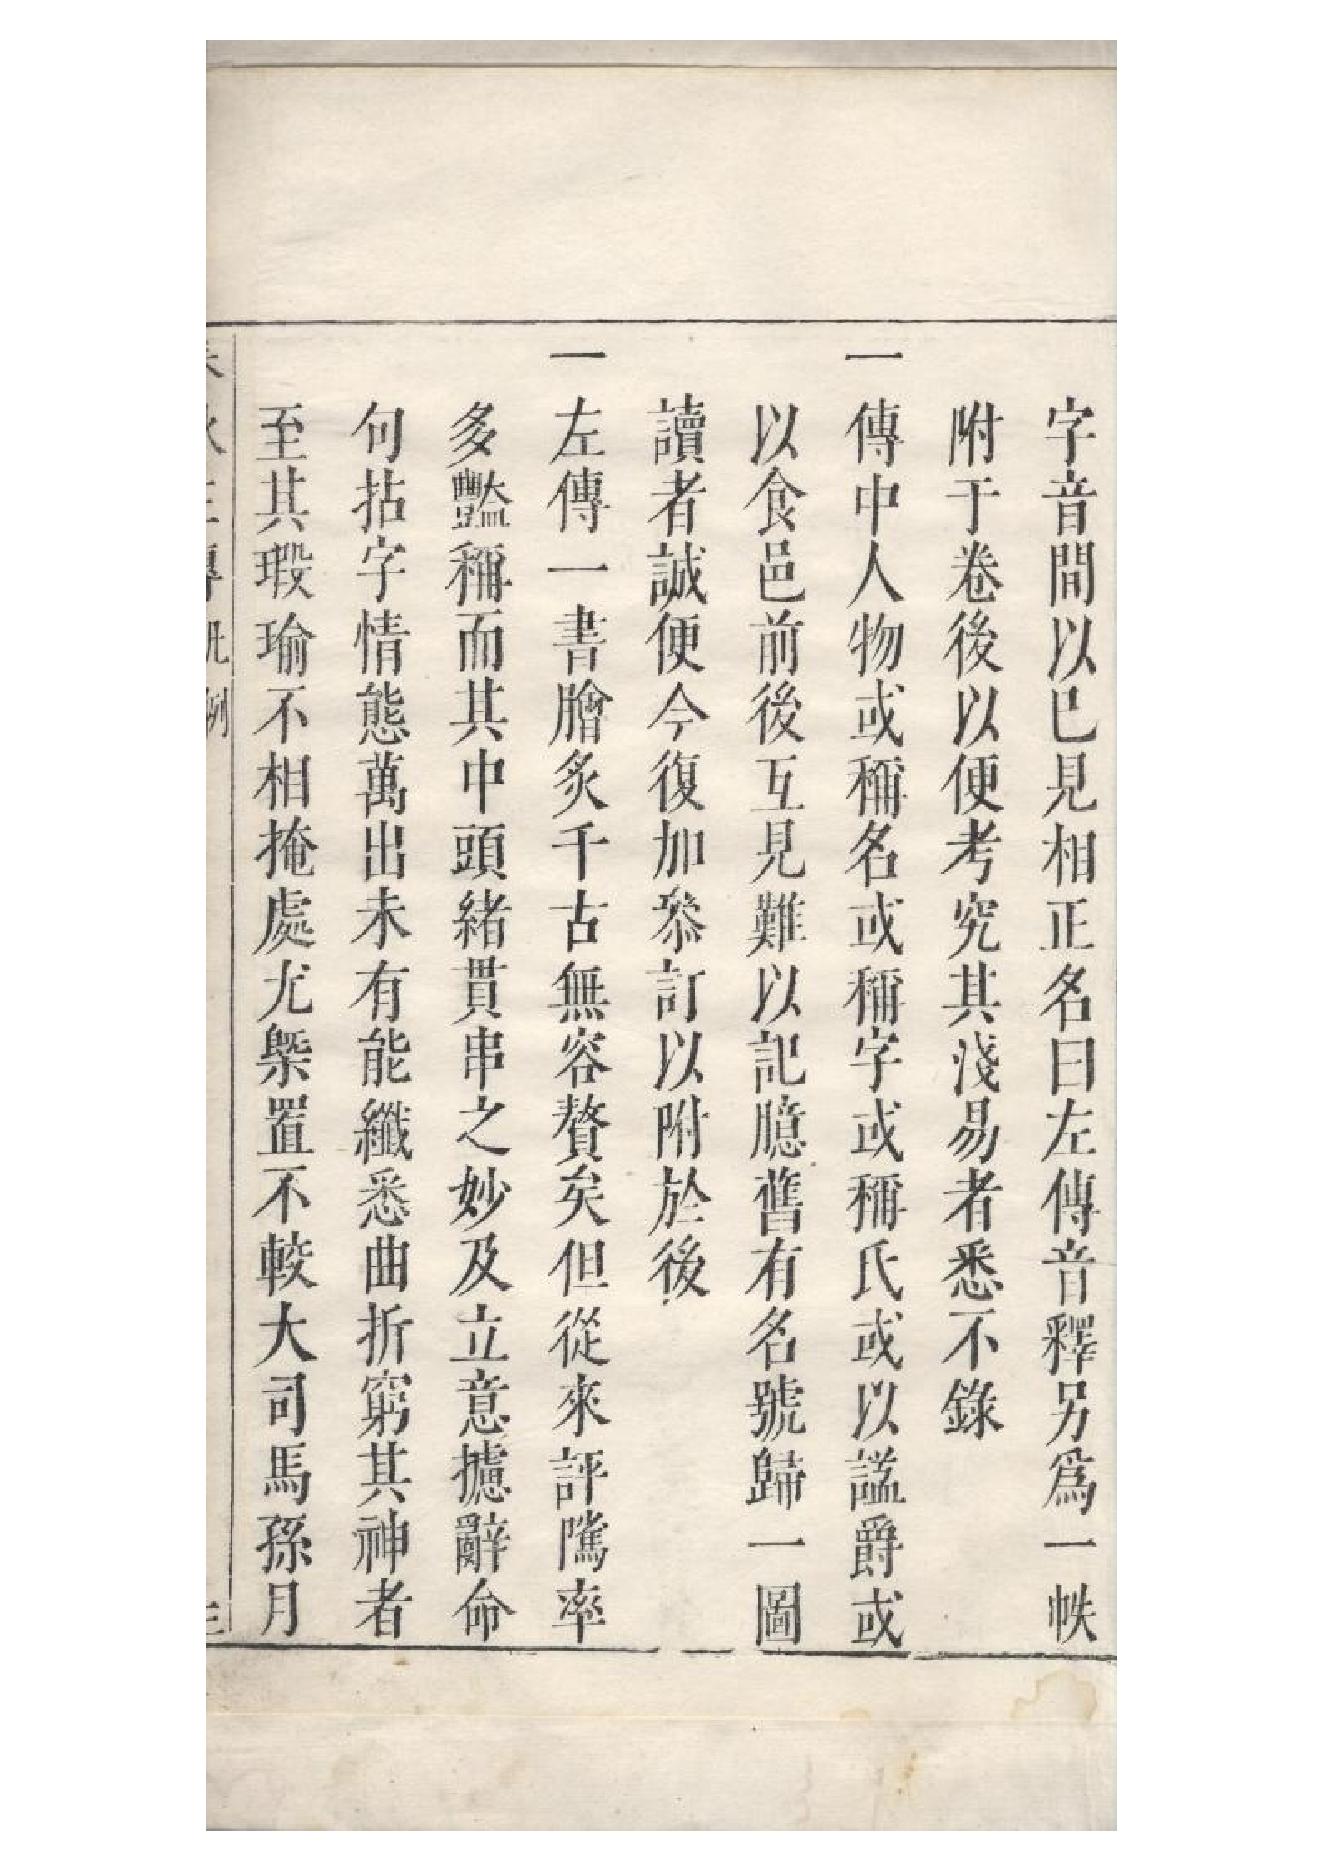 字音間以已見相正名曰左傳音釋另爲一帙
附于卷後以便考究其淺易者悉不錄
一傳中人物或稱名或稱字或稱氏或以諡爵或
以食邑前後互見難以記臆舊有名號歸一圖
讀者誠便今復加叅訂以附於後
一左傳一書膾炙千古無容贅矣但從來評隲率
多豔稱而其中頭緒貫串之妙及立意攄辭命
句拈字情態萬出未有能纖悉曲折窮其神者
至其瑕瑜不相掩處尤槩置不較大司馬孫月
春秋左傳凡例 三